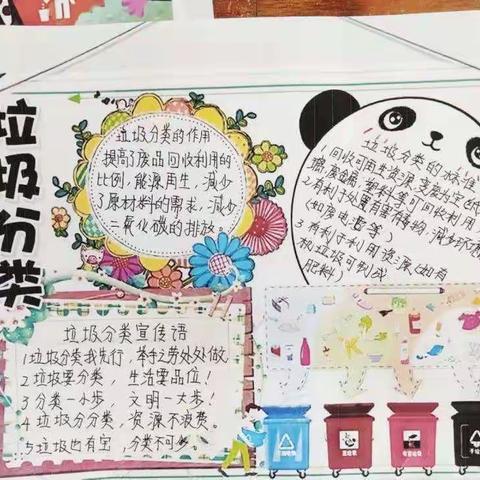 垃圾分类
垃圾分类的作用
提高了废品回收利用的
比例,能源再生,减少
了原材料的需求,减少
二氧化碳的排放。
垃圾分类的标准
1,回收可用生资源,变废为宝(纸
塘,废金属,塑料等可回收利用
2有利于设置有害毒物,减少环境
(如废电器等)
3有利于利用资源(如有
机垃圾可制成
肥料)
垃圾分类宣传语
1垃圾分类我先行,举手之劳处处做
2垃圾要分类,生活要品位!
3分类一小步 文明一大步!
4垃圾分分类,资源不浪费。
5垃圾也有宝,分类不可少